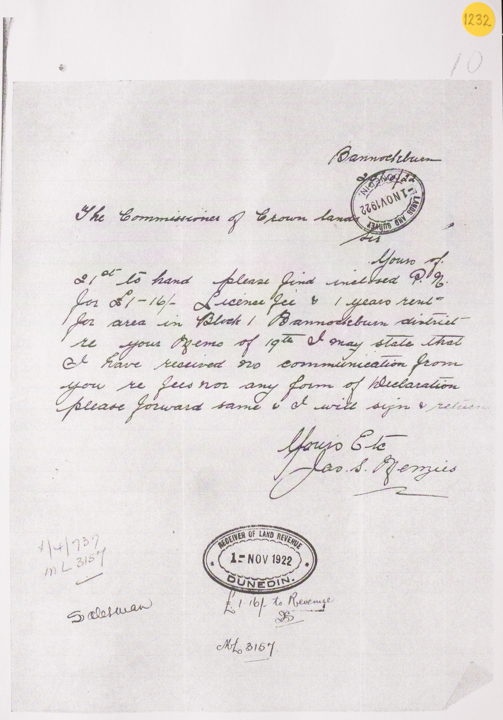 1232
10
Bannockburn
/10/22
LANDS AND SURVEY
1 NOV 1922
The Commissioner of Crown lands
Sir
Yours of
21st to hand please find inclosed P.N.
for £1-16/- Licence fee & 1 years rent
for area in Block 1 Bannockburn district
re your Memo of 19th I may state that
I have received no communication from
you re fees nor any form of Declaration
please forward same & I will sign & return
Yours Etc
Jas. S. Menzies
RECEIVER OF LAND REVENUE
1 - NOV 1922
DUNEDIN.
4/4/737
ML 3157
£1-16/- to Revenue
ML 3157.